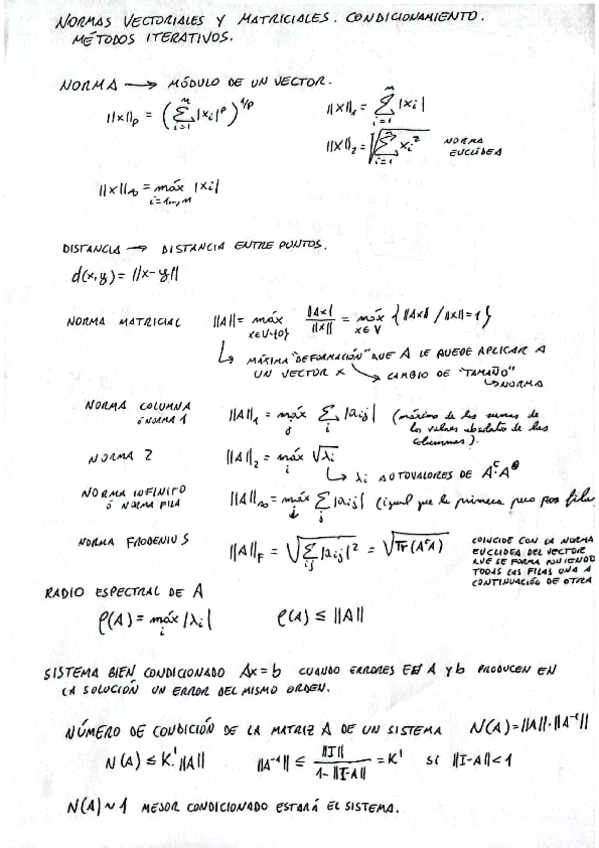 NORMAS VECTORIALES Y MATRICIALES. CONDICIONAMIENTO.
MÉTODOS ITERATIVOS.
NORMA → MÓDULO DE UN VECTOR.
||x||ₚ = (Σᵢ₌₁ⁿ |xᵢ|ᵖ)^1/p ||x||₁ = Σᵢ₌₁ⁿ |xᵢ|
||x||₂ = √(Σᵢ₌₁ⁿ xᵢ²) NORMA EUCLÍDEA
||x||∞ = máx |xᵢ|
i=1,...,n
DISTANCIA → DISTANCIA ENTRE PUNTOS.
d(x,y) = ||x-y||
NORMA MATRICIAL ||A|| = máx x∈V-{0} ||Ax||/||x|| = máx x∈V {||Ax|| / ||x||=1}
↳ MÁXIMA "DEFORMACIÓN" QUE A LE PUEDE APLICAR A
UN VECTOR X → CAMBIO DE "TAMAÑO"
↳ NORMA
NORMA COLUMNA Ó NORMA 1 ||A||₁ = máx j Σ i |aᵢⱼ| (máximo de las sumas de
los valores absolutos de las
columnas).
NORMA 2 ||A||₂ = máx i √λᵢ
↳ λᵢ AUTOVALORES DE
NORMA INFINITO Ó NORMA FILA ||A||∞ = máx i Σ j |aᵢⱼ| (igual que la primera pero por filas
NORMA FROBENIUS ||A||F = √(Σ ij |aᵢⱼ|²) = √(Tr(AᵗA)) COINCIDE CON LA NORMA
EUCLIDEA DEL VECTOR
QUE SE FORMA PONIENDO
TODAS LAS FILAS UNA A
CONTINUACIÓN DE OTRA
RADIO ESPECTRAL DE A
ρ(A) = máx i |λᵢ| ρ(A) ≤ ||A||
SISTEMA BIEN CONDICIONADO Ax=b CUANDO ERRORES EN A y b PRODUCEN EN
LA SOLUCIÓN UN ERROR DEL MISMO ORDEN.
NÚMERO DE CONDICIÓN DE LA MATRIZ A DE UN SISTEMA N(A)=||A||·||A⁻¹||
N(A) ≤ K'·||A|| ||A⁻¹|| ≤ ||I||/(1-||I-A||) = K' SI ||I-A||<1
N(A)~1 MEJOR CONDICIONADO ESTARÁ EL SISTEMA.